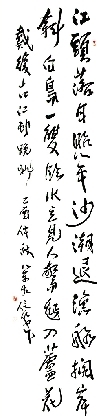 江頭落日照平沙潮退漁船擱岸
斜白鳥一雙臨水立見人驚起入蘆花
戴復古江村晚眺